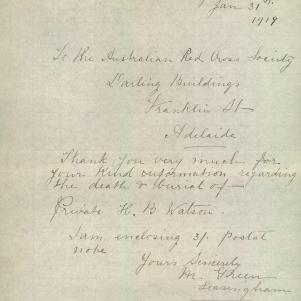 Jan 31st
1919
To the Australian Red Cross Society
Darling Buildings
Franklin St
Adelaide
Thank you very much for
your kind information regarding
the death & burial of
Private H. B Watson.
I am enclosing 3/. postal
note
Yours Sincerely
M. Green
Leasingham